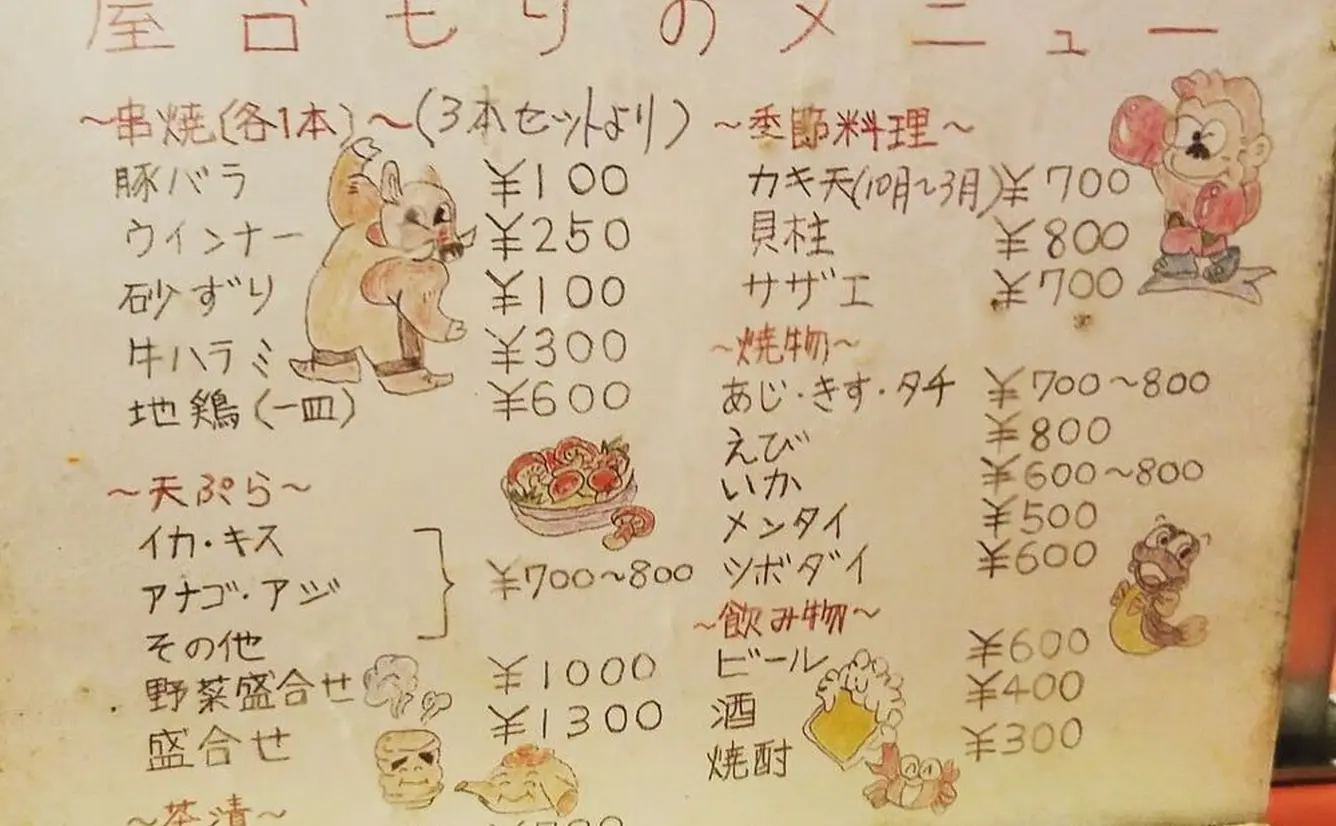 屋台もりのメニュー
～串焼(各1本)～(3本セットより)
豚バラ ¥100
ウインナー ¥250
砂ずり ¥100
牛ハラミ ¥300
地鶏(一皿) ¥600
～天ぷら～
イカ・キス
アナゴ・アジ ¥700～800
その他
野菜盛合せ ¥1000
盛合せ ¥1300
～茶漬～
～季節料理～
カキ天(10月～3月) ¥700
貝柱 ¥800
サザエ ¥700
～焼物～
あじ・きす・タチ ¥700～800
えび ¥800
いか ¥600～800
メンタイ ¥500
ツボダイ ¥600
～飲み物～
ビール ¥600
酒 ¥400
焼酎 ¥300